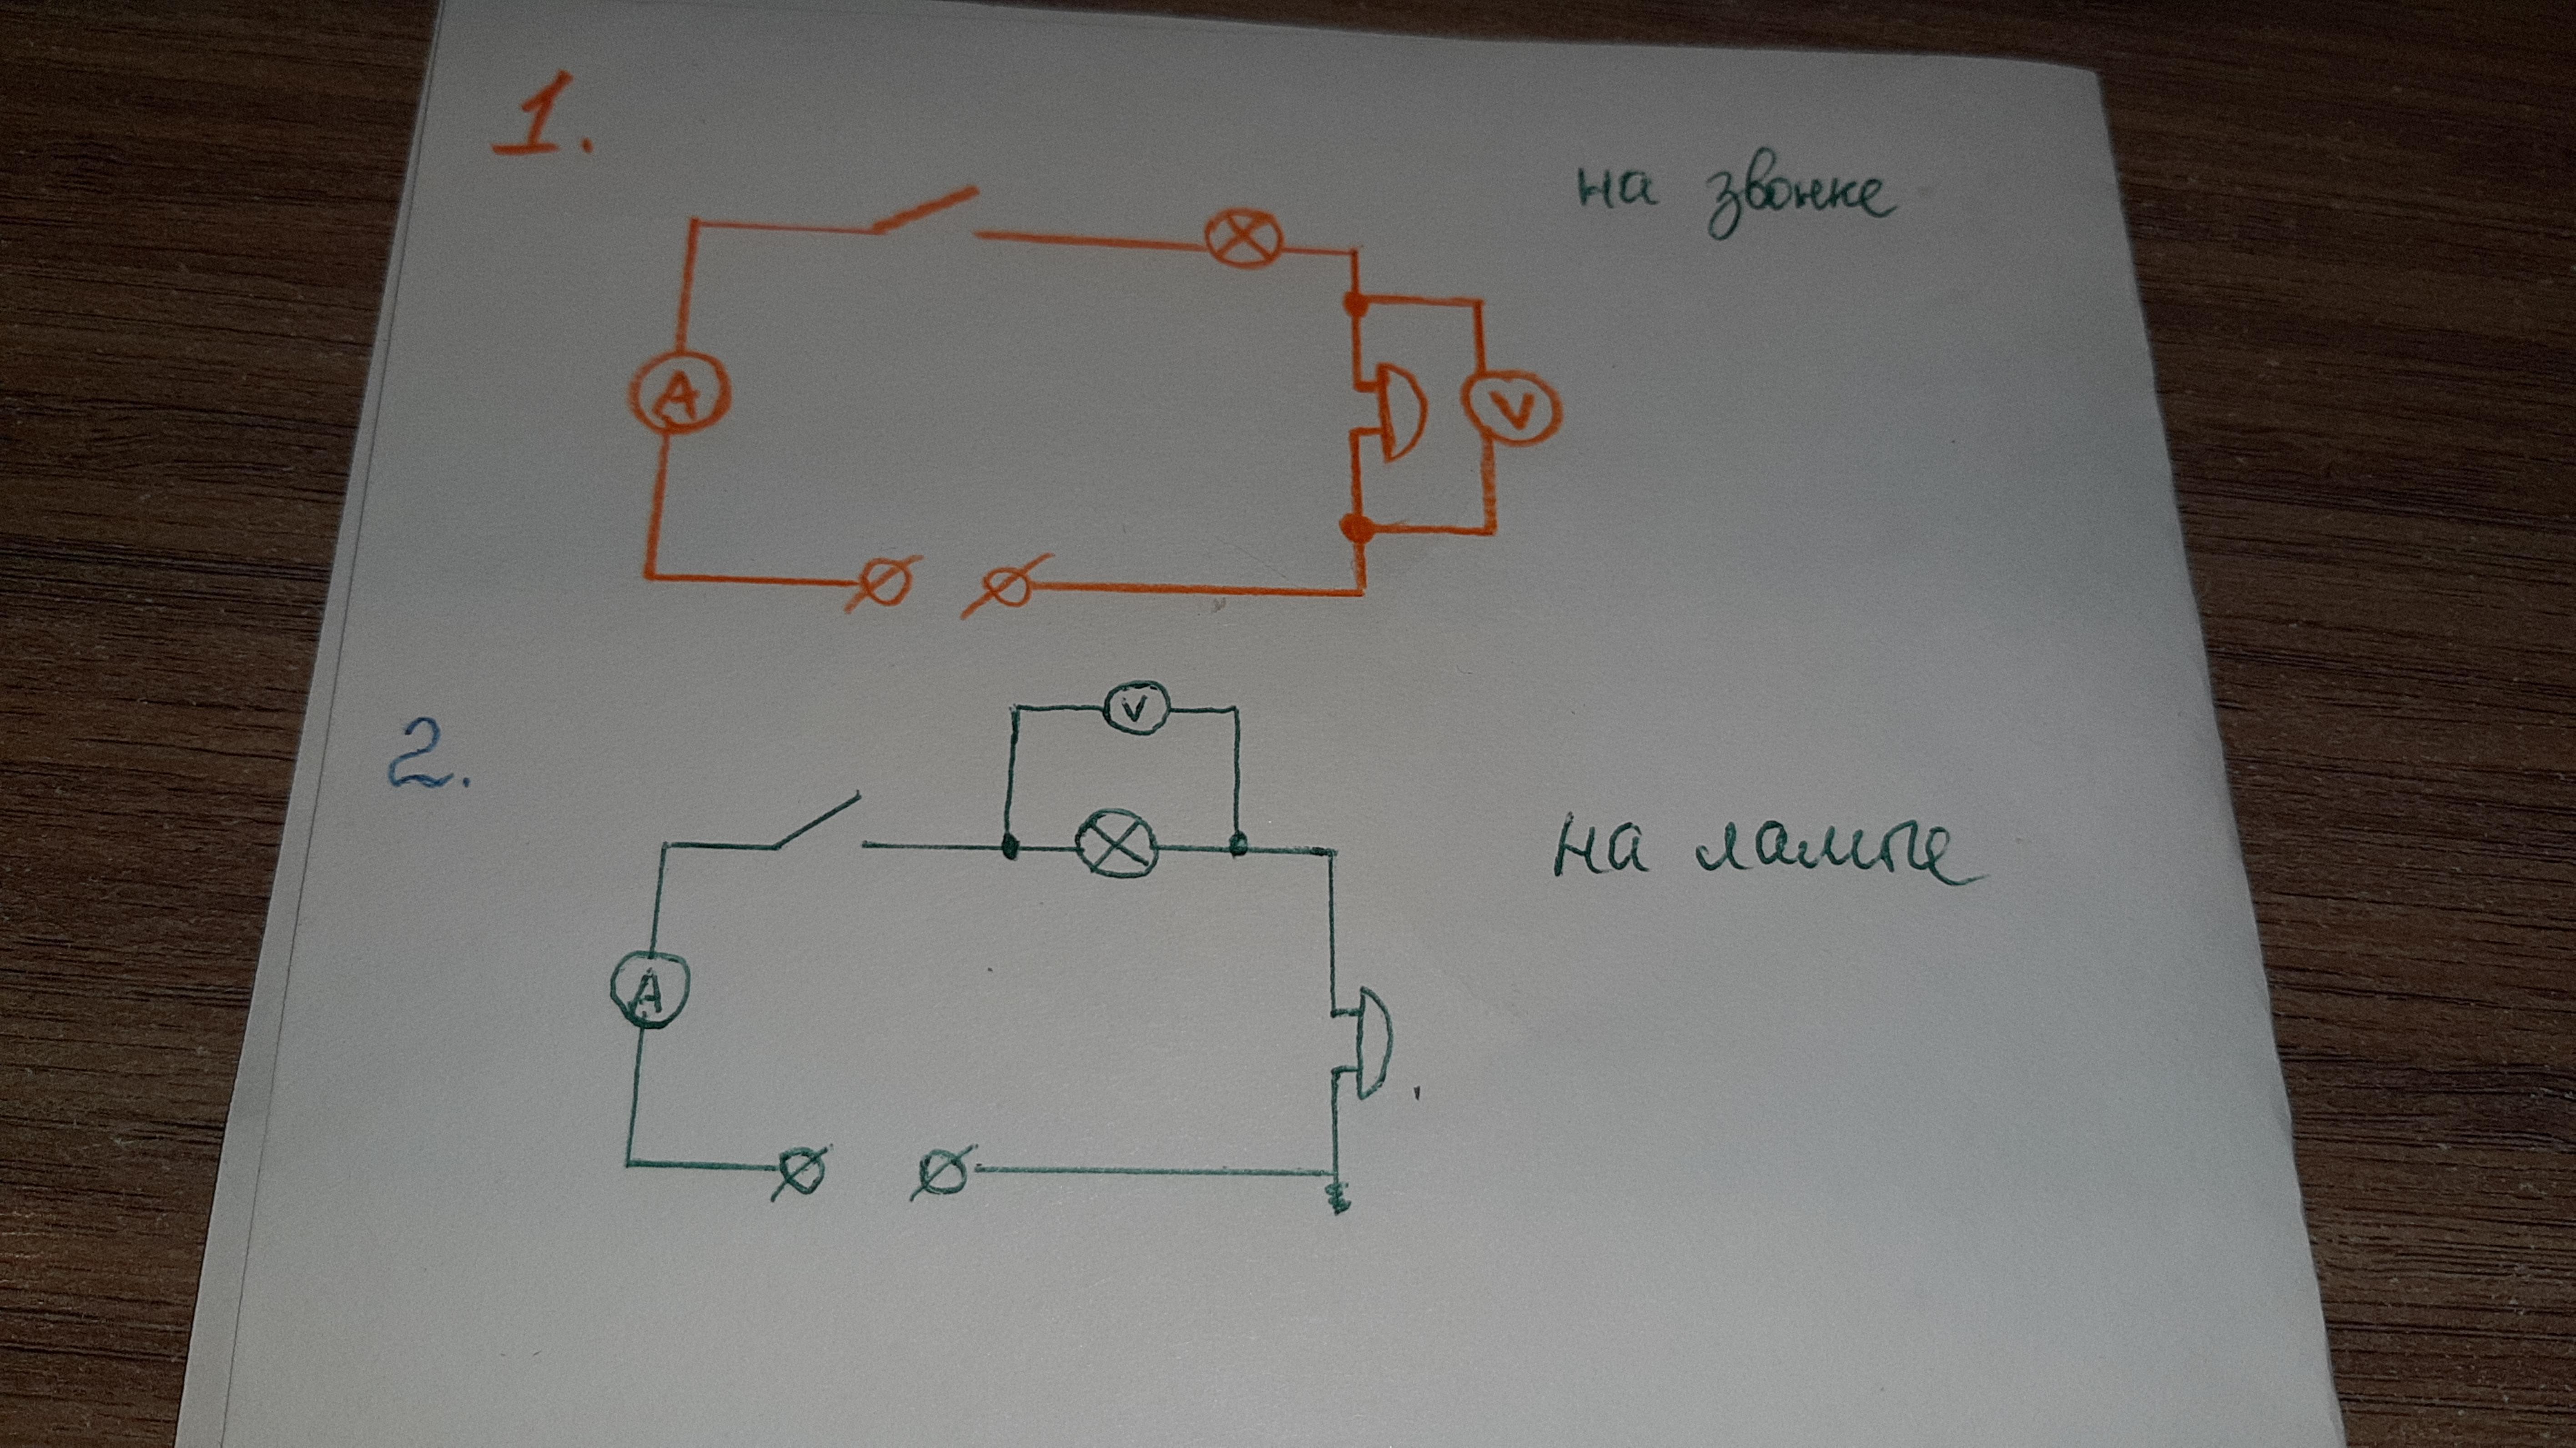 1.
на звонке
A
V
2.
V
на лампе
A